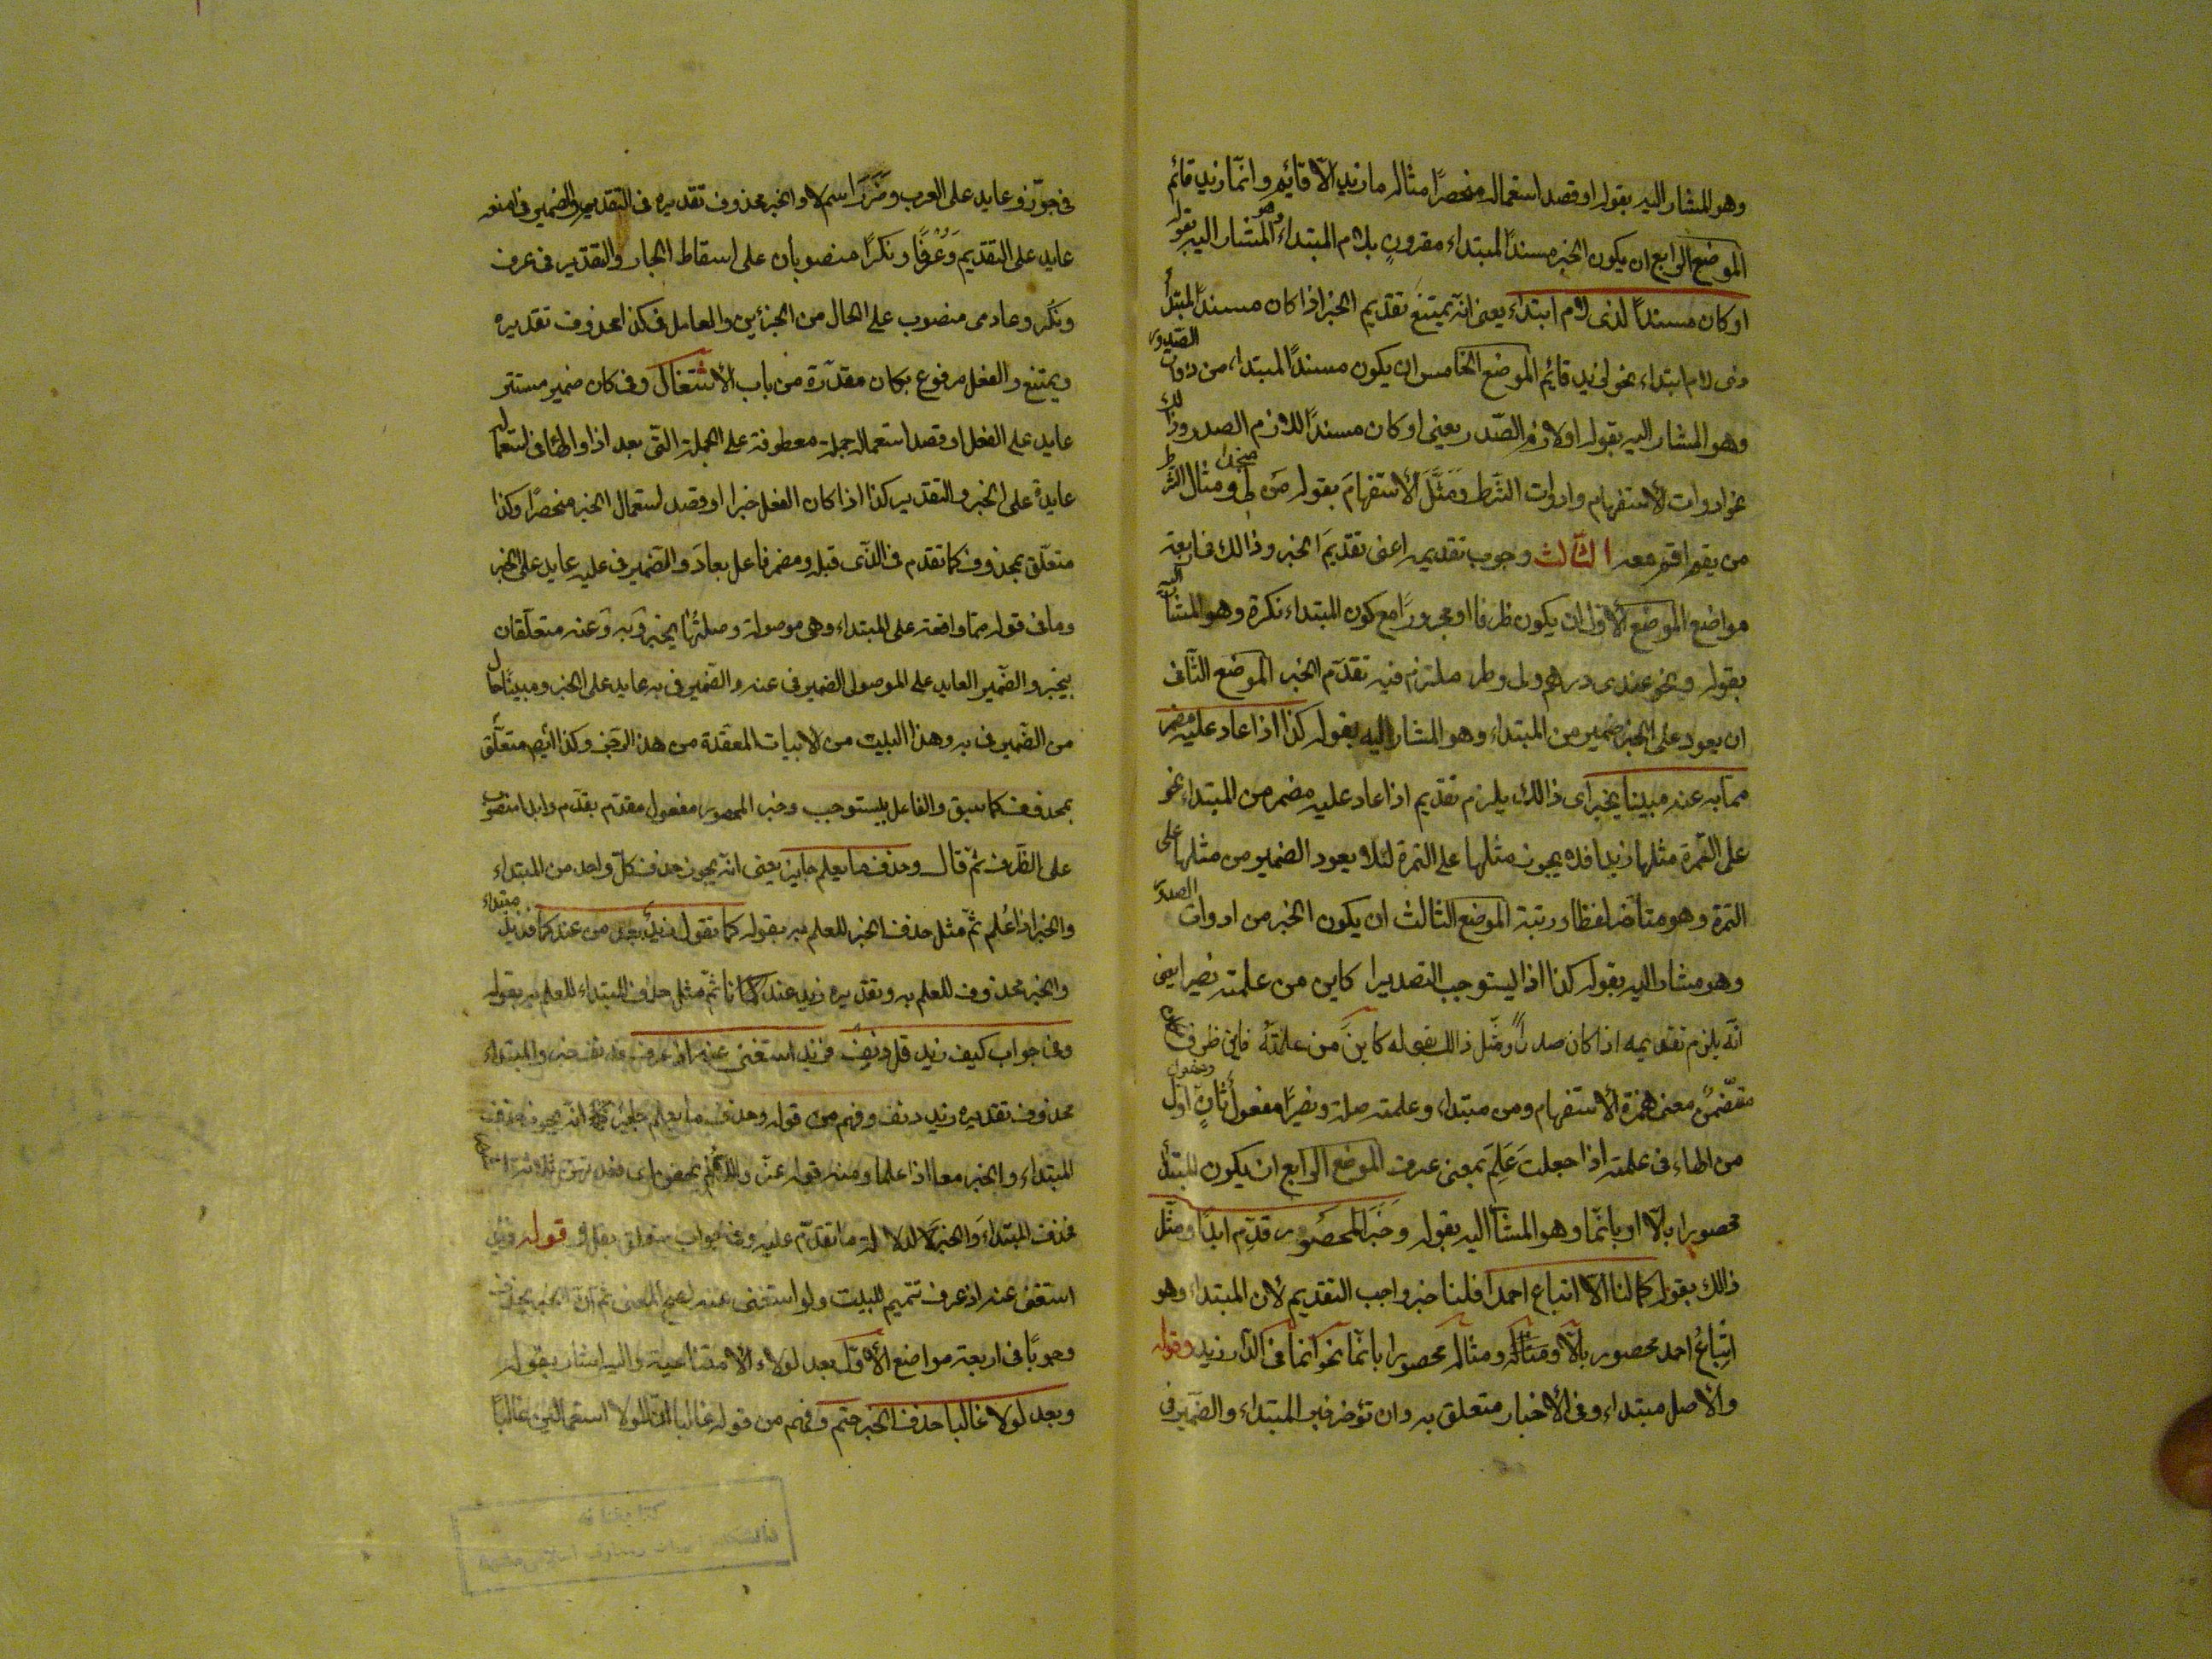 وهو المشار اليه بقوله او قصد استعماله منحصرًا مثاله ما زيد الّا قائم وانّما زيد قائم
الموضع الرابع ان يكون الخبر مسندًا لمبتداء مقرونٍ بلام المبتداء وهو المشار اليه بقوله
او كان مسندًا لذى لام ابتداء يعنى انّه يمتنع تقديم الخبر اذا كان مسندًا لمبتدأ
ذى لام ابتداء نحو لزيد قائم الموضع الخامس ان يكون مسندًا لمبتداء من ذوات الصّدور
وهو المشار اليه بقوله او لازم الصّدر يعنى او كان مسندًا للازم الصدر وذالك
نحو ادوات الاستفهام وادوات الشّرط ومَثَّلَ الأستفهامَ بقوله مَن لى منجدا ومثال الشّرط
من يقم اقم معه الثّالث وجوب تقديمه اعنى تقديمَ الخبر وذالك فى اربعة
مواضع الموضع الاوّل ان يكون ظرفا او مجرورًا مع كون المبتداء نكرة وهو المشار اليه
بقوله ونحو عندى درهم ولى وطر ملتزم فيه تقدّم الخبر الموضع الثّانى
ان يعود على الخبر ضمير من المبتداء وهو المشار اليه بقوله كذا اذا عاد عليه مضمر
ممّا به عنه مبينا يخبر اى ذالك يلزم تقديم اذا عاد عليه مضمر من المبتداء نحو
على التّمرة مثلها زبدا فلا يجوز مثلها على التمرة لئلا يعود الضمير من مثلها على
التمرة وهو متأخر لفظا ورتبة الموضع الثالث ان يكون الخبر من ادوات الصدر
وهو مشار اليه بقوله كذا اذا ليستوجب التصديرا كاين من علمته نصيرا يعنى
انّه يلزم تقديمه اذا كان صدرًا ومَثَّل ذالك بقوله كاينَ من علمتَهُ فاين ظرف
متضمّنٌ معنى همزة الأستفهام ومن مبتداء وعلمته صلة ونصيرًا مفعول ثانٍ ومفعول اوّل
من الهاء فى علمته اذا جعلت عَلِمَ بمعنى عرفت الموضع الرابع ان يكون المبتدأ
محصورا بالّا او بانّما وهو المشار اليه بقوله وخَبَرَ المحصُور قدِّم ابدًا ومثّل
ذالك بقوله كما لنا الّا اتباع احمدا فلنا خبر واجب التقديم لان المبتداء وهو
اتّباعُ احمد محصور بالّا ومثاله ومثالُه محصورا بانّما نحو انّما فى الدّار زيد وقوله
والاصل مبتداء وفى الأخبار متعلق به وان تؤخر خبر المبتداء والضّمير فى
فى جوّزو عايد على العرب وضَرَرَا اسم لا والخبر محذوف تقديره فى التّقديم والضمير فى امنعه
عايد على التقديم وَعُرْفًا ونكرًا منصوبان على اسقاط الجار والتقدير فى عرف
ونكر وعادمى منصوب على الحال من الجزئين والعامل فى كذا محذوف تقديره
ويمتنع والفعل مرفوع بكان مقدّرة من باب الأشتغال وفى كان ضمير مستتر
عايد على الفعل او قصد استعماله جملة معطوفة على الجملة التّى بعد اذا والهاء فى استعماله
عايدة على الخبر والتقدير كذا اذا كان الفعل خبرا او قصد استعمال الخبر منحصرًا وكذا
متعلّق بمحذوف كما تقدم فى الذّى قبله ومضمر فاعل بعادَ والضمير فى عليه عايد على الخبر
وما فى قوله ممّا واقعة على المبتداء وهى موصولة وصلتُها يخبر وَبِه وَعنه متعلّقان
بيخبر والضّمير العايد على الموصول الضمير فى عنه والضّمير فى به عايد على الخبر ومبينًا حال
من الضّمير فى به وهذا البيت من الابيات المعقدة من هذا الرّجز وكذا ايض متعلّق
بمحذوف كما سبق والفاعل بيستوجب وخبر المحصور مفعول مقدّم بقدّم وابدا منصوب
على الظّرف ثمّ قال وحذف ما يعلم جايز يعنى انّه يجوز حذف كلّ واحد من المبتداء
والخبر اذا عُلم ثمّ مثل حذف الخبر للعلم به بقوله كما تقول زيدٌ بعد من عندكما فزيد مبتداء
والخبر محذوف للعلم به وتقديره زيد عندنا ثمّ مثّل حذف المبتداء للعلم به بقوله
وفى جواب كيف زيد قل دنِف فزيد استغنى عنه اذ عرف فدنف خبر والمبتداء
محذوف تقديره زيد دنف وفهم من قوله وحذف ما يعلم جايز انّه يجوز حذف
المبتداء والخبر معا اذا علما ومنه قوله عزّ واللّائى لم يحضن اى فعدّتهنّ ثلاثة اشهر
فحذف المبتداء والخبر لدلالة ما تقدّم عليه وفى جواب متعلق بقل و قوله فزيد
استغنى عنه اذ عرف تتميم للبيت ولو استغنى عنه لصحّ المعنى ثمّ انّ الخبر يحذف
وجوبًا فى اربعة مواضع الأوّل بعد لولاء الأمتناعية واليه اشار بقوله
وبعد لولا غالبا حذف الخبر حتم وفهم من قوله غالبا انّ للولا استعمالين غالبًا
كتابخانه
دانشكده الهيات ومعارف اسلامى مشهد